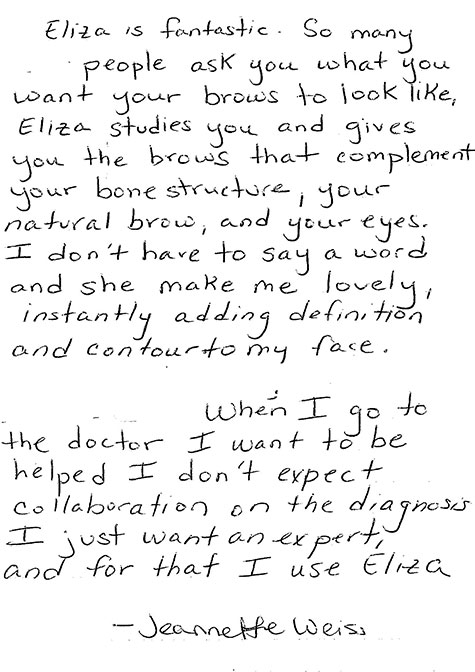 Eliza is fantastic. So many
people ask you what you
want your brows to look like,
Eliza studies you and gives
you the brows that complement
your bone structure, your
natural brow, and your eyes.
I don't have to say a word
and she make me lovely,
instantly adding definition
and contour to my face.
When I go to
the doctor I want to be
helped I don't expect
collaboration on the diagnosis
I just want an expert,
and for that I use Eliza
- Jeannette Weiss